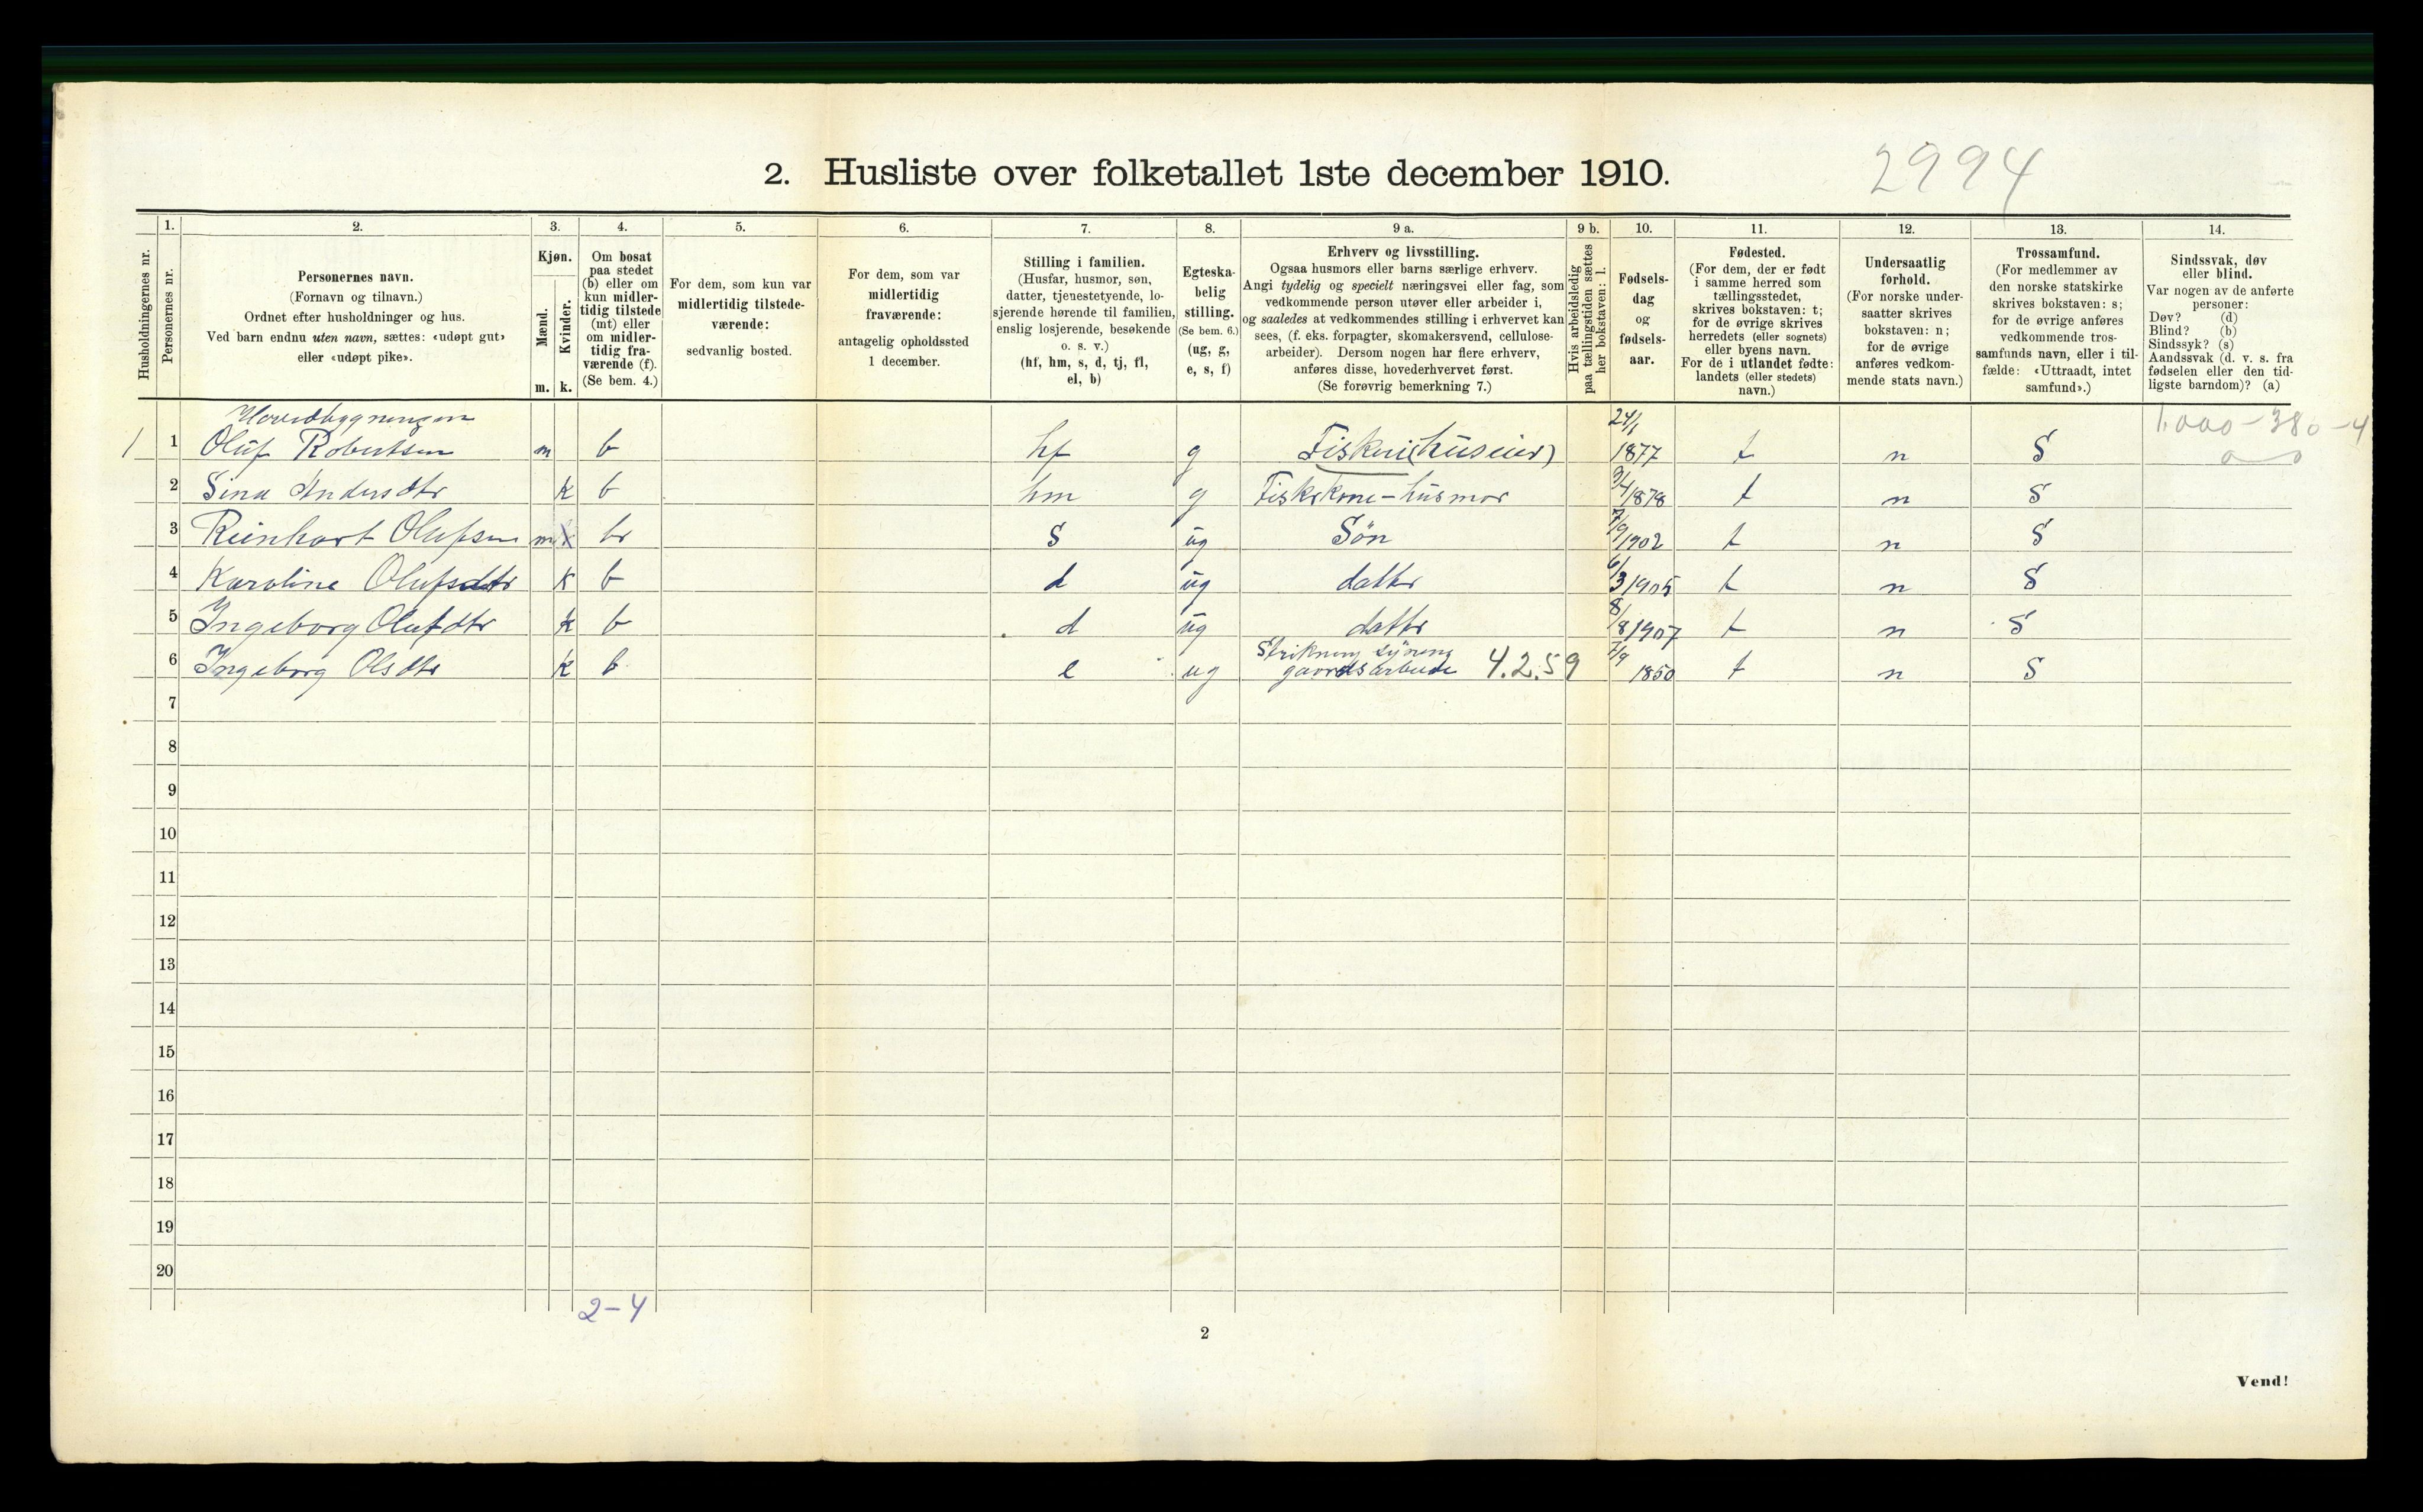 2. Husliste over folketallet 1ste december 1910.
2994
Husholdningernes nr.
1.
Personernes nr.
2.
Personernes navn.
(Fornavn og tilnavn.)
Ordnet efter husholdninger og hus.
Ved barn endnu uten navn, sættes: «udøpt gut»
eller «udøpt pike».
3.
Kjøn.
Mænd.
Kvinder.
m. k.
4.
Om bosat
paa stedet
(b) eller om
kun midler-
tidig tilstede
(mt) eller
om midler-
tidig fra-
værende (f).
(Se bem. 4.)
5.
For dem, som kun var
midlertidig tilstede-
værende:
sedvanlig bosted.
6.
For dem, som var
midlertidig
fraværende:
antagelig opholdssted
1 december.
7.
Stilling i familien.
(Husfar, husmor, søn,
datter, tjenestetyende, lo-
sjerende hørende til familien,
enslig losjerende, besøkende
o. s. v.)
(hf, hm, s, d, tj, fl,
el, b)
8.
Egteska-
belig
stilling.
(Se bem. 6.)
(ug, g,
e, s, f)
9 a.
Erhverv og livsstilling.
Ogsaa husmors eller barns særlige erhverv.
Angi tydelig og specielt næringsvei eller fag, som
vedkommende person utøver eller arbeider i,
og saaledes at vedkommendes stilling i erhvervet kan
sees, (f. eks. forpagter, skomakersvend, cellulose-
arbeider). Dersom nogen har flere erhverv,
anføres disse, hovederhvervet først.
(Se forøvrig bemerkning 7.)
9 b.
Hvis arbeidsledig
paa tællingstiden sættes
her bokstaven: l.
10.
Fødsels-
dag
og
fødsels-
aar.
11.
Fødested.
(For dem, der er født
i samme herred som
tællingsstedet,
skrives bokstaven: t;
for de øvrige skrives
herredets (eller sognets)
eller byens navn.
For de i utlandet fødte:
landets (eller stedets)
navn.)
12.
Undersaatlig
forhold.
(For norske under-
saatter skrives
bokstaven: n;
for de øvrige
anføres vedkom-
mende stats navn.)
13.
Trossamfund.
(For medlemmer av
den norske statskirke
skrives bokstaven: s;
for de øvrige anføres
vedkommende tros-
samfunds navn, eller i til-
fælde: «Uttraadt, intet
samfund».)
14.
Sindssvak, døv
eller blind.
Var nogen av de anførte
personer:
Døv? (d)
Blind? (b)
Sindssyk? (s)
Aandssvak (d. v. s. fra
fødselen eller den tid-
ligste barndom)? (a)
Hovedbygningen
1.000-380-4
1 Oluf Robertsen m b hf g Fiskeri (huseier) 24/1 1877 t n S
2 Sina Andersdtr k b hm g Fiskrkone-husmor 3/4 1878 t n S
3 Reinhart Olufsen m b s ug Søn 7/9 1902 t n S
4 Karoline Olufsdtr k b d ug dattr 6/3 1905 t n S
5 Ingeborg Olufdtr k b d ug dattr 8/8 1907 t n S
Strikning syning
6 Ingeborg Olsdtr k b e ug gaardsarbeide 4.2.59 7/9 1850 t n S
7
8
9
10
11
12
13
14
15
16
17
18
19
20
2-4
2
Vend!